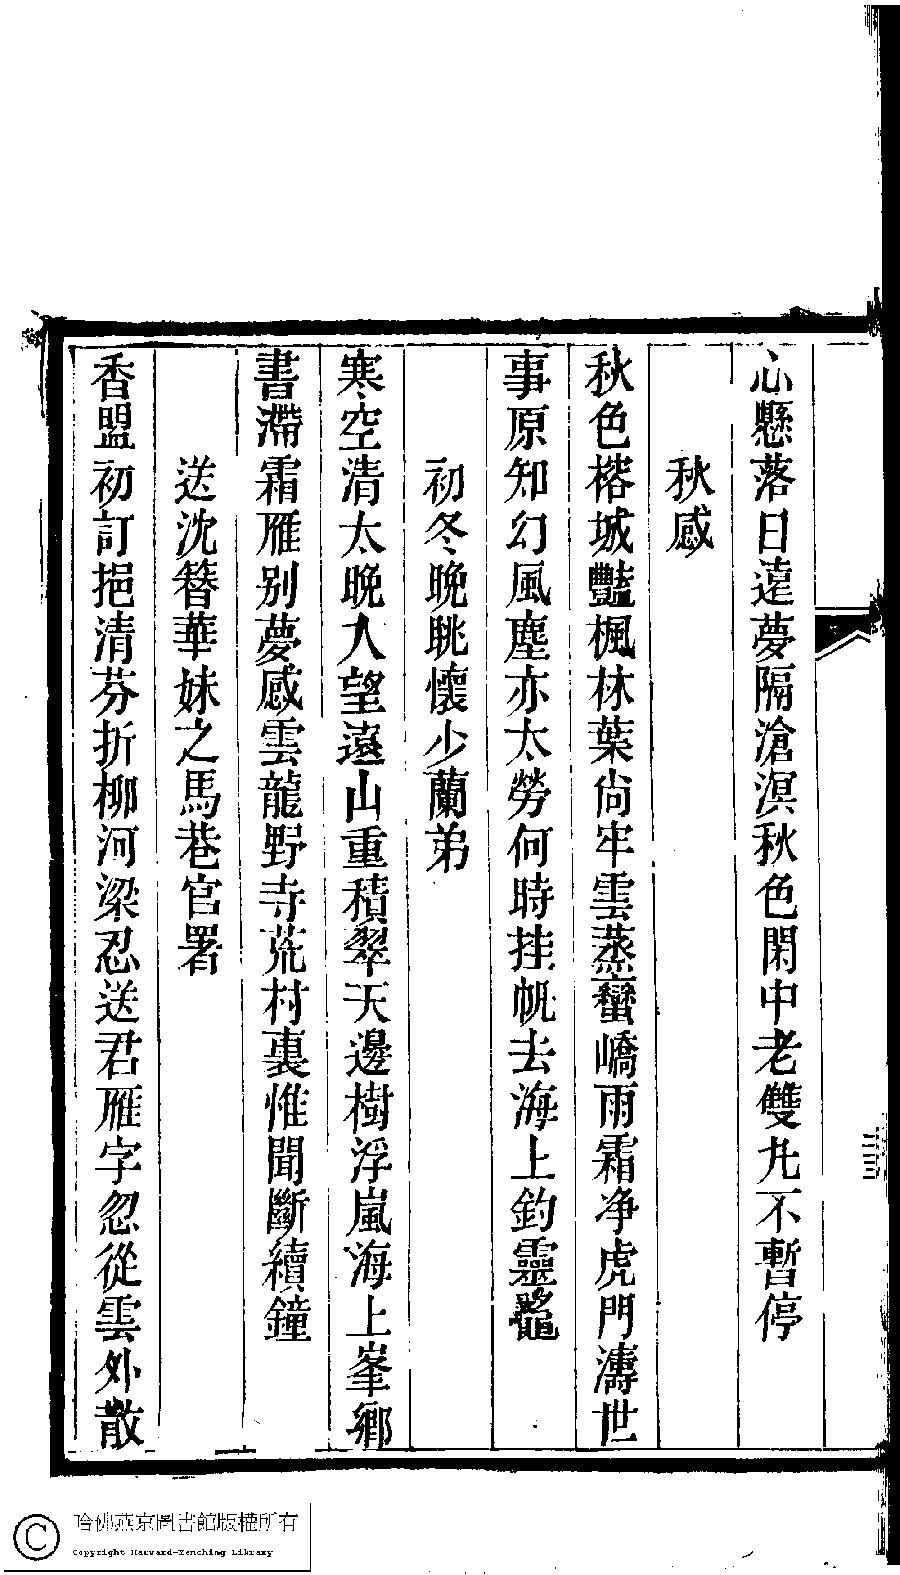 心懸落日遠夢隔滄溟秋色閑中老雙丸不暫停
秋感
秋色榕城豔楓林葉尚牢雲蒸蠻嶠雨霜净虎門濤世
事原知幻風塵亦太勞何時挂帆去海上釣靈鼇
初冬晚眺懷少蘭弟
寒空清太晚人望遠山重積翠天邊樹浮嵐海上峯鄉
書滯霜雁别夢感雲龍野寺荒村裏惟聞斷續鐘
送沈簪華妹之馬巷官署
香盟初訂挹清芬折柳河梁忍送君雁字忽從雲外散
哈佛燕京圖書館版權所有
Copyright Harvard-Yenching Library